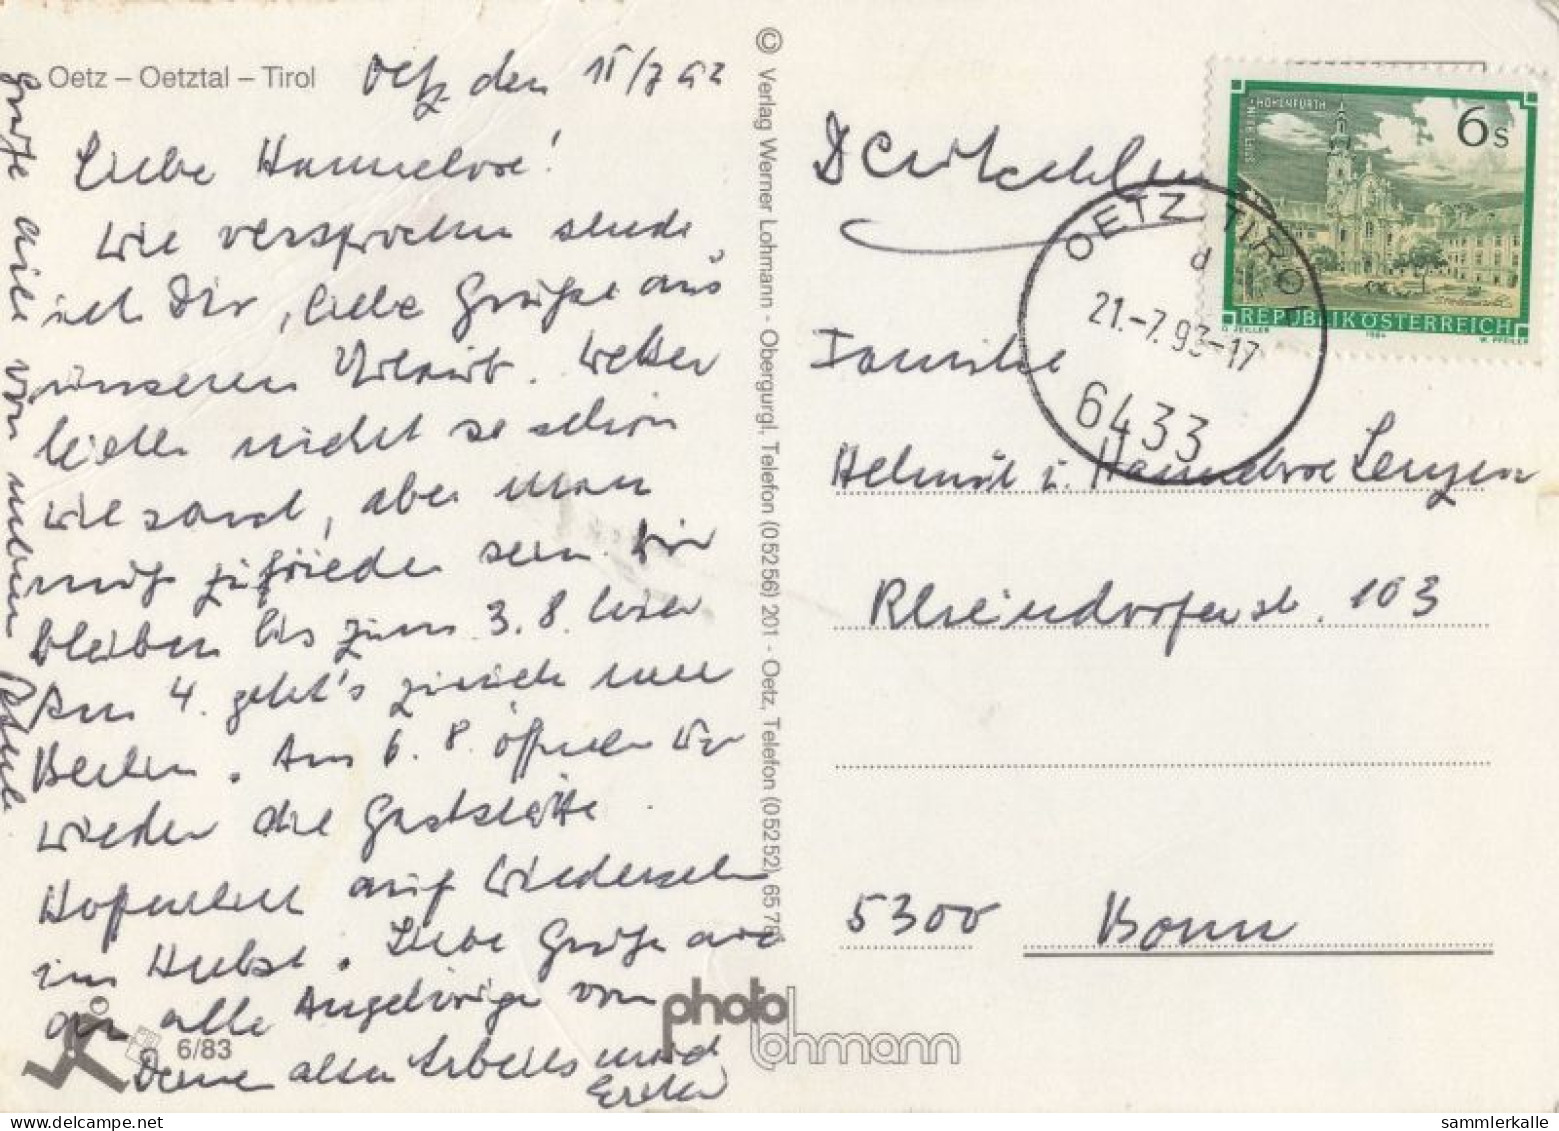 Oetz – Oetztal – Tirol
Oetz den /7 92
Liebe Hannelore!
wie versprochen sende
ich Dir, liebe Grüße aus
unseren Urlaub. Wetter
leider nicht so schön
wie sonst, aber man
muß zufrieden sein. Wir
bleiben bis zum 3. 8. hier
Am 4. geht's zurück nach
Berlin. Am 6. 8. öffnen wir
wieder die Gaststätte.
Hoffentlich auf Wiedersehn
im Herbst. Liebe Grüße auch
an alle Angehörige von
Deine alten Arbeits
Grüße von meiner
© Verlag Werner Lohmann - Obergurgl, Telefon (05256) 201 - Oetz, Telefon (05252) 65
6/83
photo lohmann
Deutschland
STIFT REIN-HOHENFURTH
6 s
REPUBLIK ÖSTERREICH
O. ZEILLER 1984 W. PFEILER
OETZ TIROL
d
21.-7.93-17
6433
Familie
Helmut u. Hannelore Lenzen
Rheindorferstr. 103
5300 Bonn
sammlerkalle